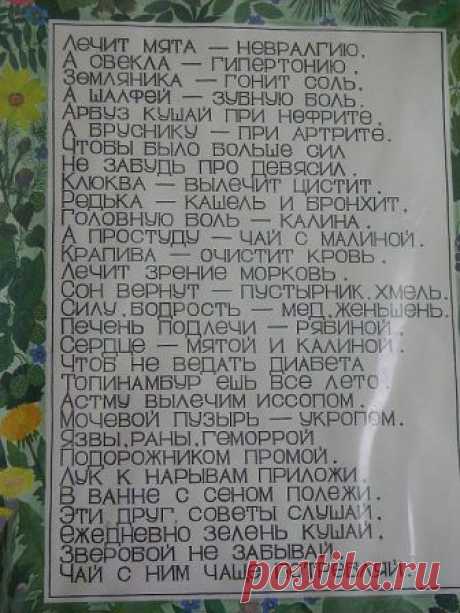 Лечит мята — невралгию.
А свекла — гипертонию.
Земляника — гонит соль.
А шалфей — зубную боль.
Арбуз кушай при нефрите.
А бруснику — при артрите.
Чтобы было больше сил
Не забудь про девясил.
Клюква — вылечит цистит.
Редька — кашель и бронхит.
Головную боль — калина.
А простуду — чай с малиной.
Крапива — очистит кровь.
Лечит зрение морковь.
Сон вернут — пустырник.хмель.
Силу.бодрость — мед.женьшень.
Печень подлечи — рябиной.
Сердце — мятой и калиной.
Чтоб не ведать диабета
Топинамбур ешь все лето.
Астму вылечим иссопом.
Мочевой пузырь — укропом.
Язвы,раны,геморрой
Подорожником промой.
Лук к нарывам приложи.
В ванне с сеном полежи.
Эти друг советы слушай.
Ежедневно зелень кушай.
Зверобой не забывай
Чай с ним чаще
postila.ru